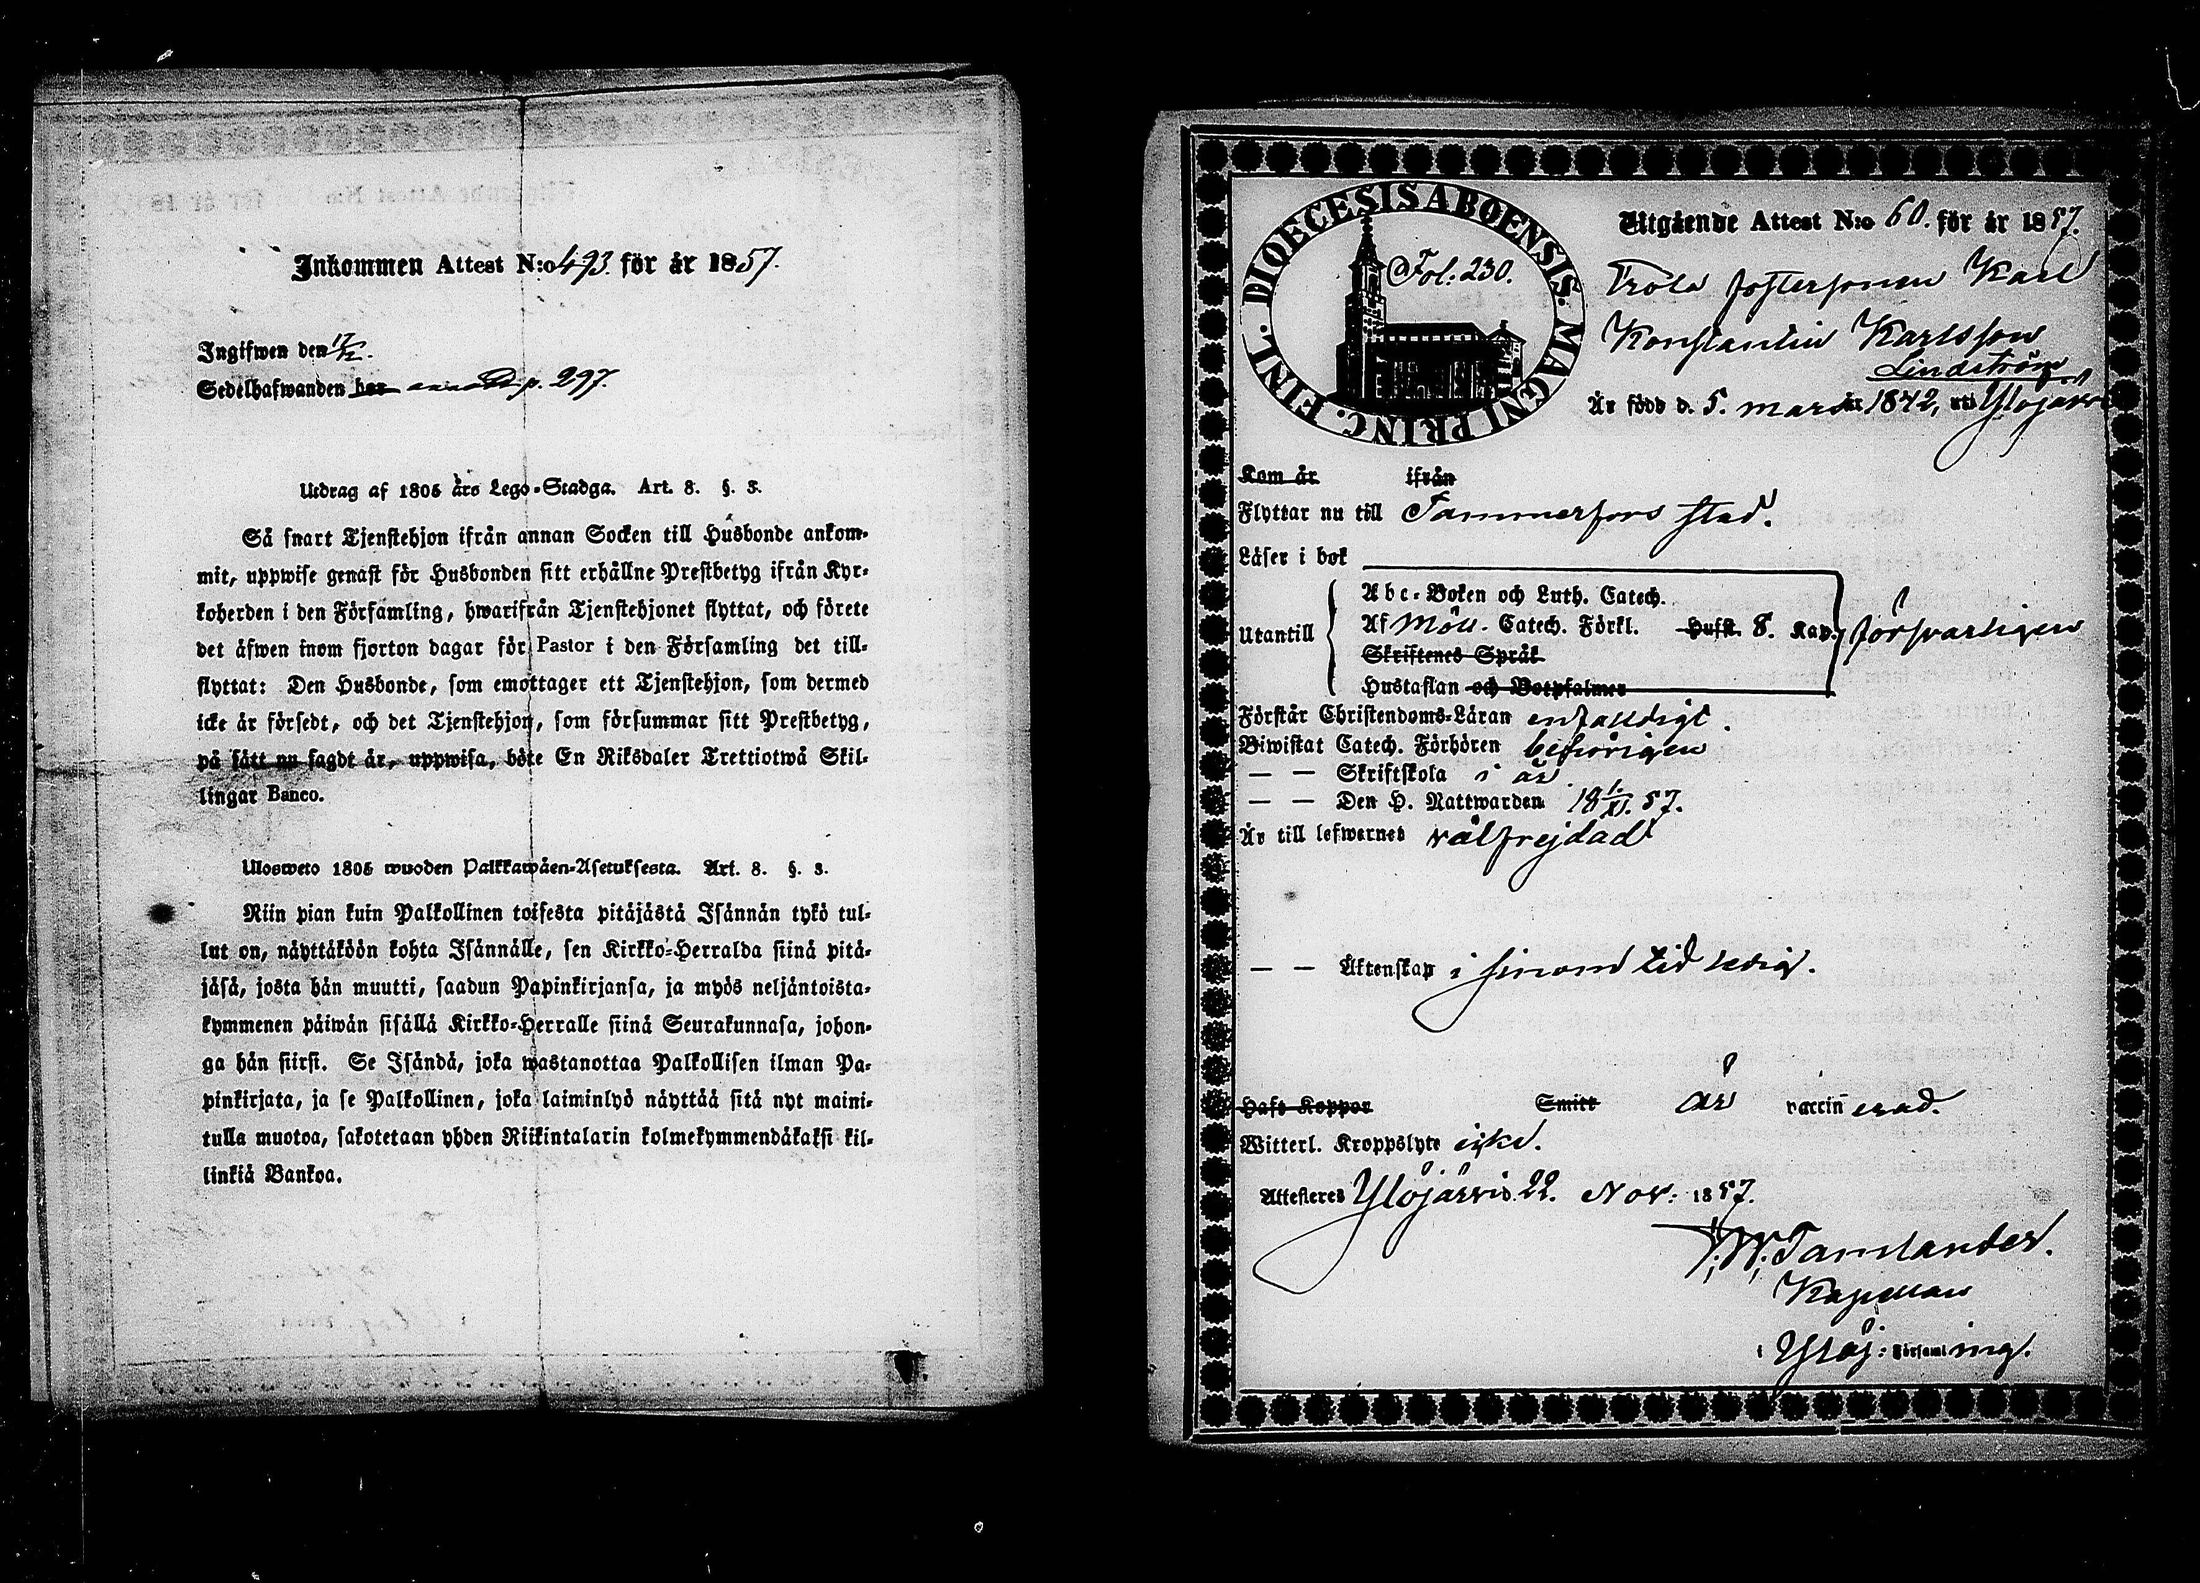 Inkommen Attest N:o 493. för år 1857.
Ingifwen den 17/12.
Sedelhafwanden har p. 297.
Utdrag af 1805 års Lego-Stadga. Art. 8. §. 3.
Så snart Tjenstehjon ifrån annan Socken till Husbonde ankom-
mit, uppwise genast för Husbonden sitt erhållne Prestbetyg ifrån Kyr-
koherden i den Församling, hwarifrån Tjenstehjonet flyttat, och förete
det äfwen inom fjorton dagar för Pastor i den Församling det till-
flyttat: Den Husbonde, som emottager ett Tjenstehjon, som dermed
icke är försedt, och det Tjenstehjon, som försummar sitt Prestbetyg,
på sätt nu sagdt är, uppwisa, böte En Riksdaler Trettiotwå Skil-
lingar Banco.
Ulosweto 1805 wuoden Palkkawäen-Asetuksesta. Art. 8. §. 3.
Niin pian kuin Palkollinen toisesta pitäjästä Isännän tykö tul-
lut on, näyttäköön kohta Isännälle, sen Kirkko-Herralda siinä pitä-
jäsä, josta hän muutti, saadun Papinkirjansa, ja myös neljäntoista-
kymmenen päiwän sisällä Kirkko-Herralle siinä Seurakunnasa, johon-
ga hän siirsi. Se Isändä, joka wastanottaa Palkollisen ilman Pa-
pinkirjata, ja se Palkollinen, joka laiminlyö näyttää sitä nyt maini-
tulla muotoa, sakotetaan yhden Riikintalarin kolmekymmendäkaksi kil-
linkiä Bankoa.
DIOECESIS ABOENSIS. MAGNI PRINC. FINL.
Fol: 230.
Utgående Attest N:o 60. för år 1857.
fostersonen Karl
Konstantin Karlsson
Lindström
Är född d. 5. mars år 1842, uti Ylöjärvi
Kom år ifrån
Flyttar nu till Tammerfors stad.
Läser i bok
Utantill
Abc-Boken och Luth. Catech.
Af Möll. Catech. Förkl. Hufst. 8. Kap. försvarligen
Skriftenes Språk
Hustaflan och Botpsalmer
Förstår Christendoms-Läran enfaldigt.
Biwistat Catech. Förhören behörigen
— — Skriftskola i år
— — Den H. Nattwarden 18 1/XI. 57.
Är till lefwernes välfrejdad
— — Äktenskap i sinom tid ledig.
Haft Koppor Smitt är vaccinerad.
Witterl. Kroppslyte icke.
Attesteres Ylöjärvi d. 22. Nov: 1857.
F. W. Tamlander.
Kapellan
i Ylöj: Församling.